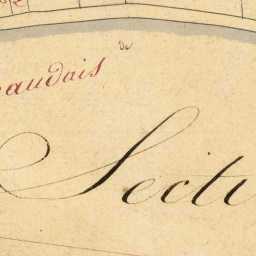 de
audais
Secti